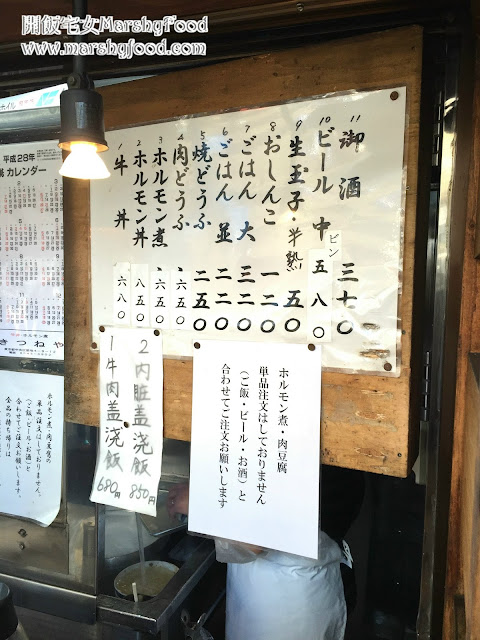 開飯宅女MarshyFood
www.marshyfood.com
平成28年
カレンダー
きつねや
11 御酒 三七〇
10 ビール 中 ビン 五八〇
9 生玉子・半熟 五〇
8 おしんこ 一二〇
7 ごはん 大 三二〇
6 ごはん 並 二二〇
5 焼どうふ 二五〇
4 肉どうふ 、六五〇
3 ホルモン煮 、六五〇
2 ホルモン丼 八五〇
1 牛丼 六八〇
2 内脏盖浇飯 850円
1 牛肉盖浇飯 680円
ホルモン煮・肉豆腐
単品注文はしておりません
（ご飯・ビール・お酒）と
合わせてご注文お願いします
ホルモン煮・肉豆腐の
単品注文はしておりません。
（ご飯・ビール・お酒）と
合わせてご注文お願い